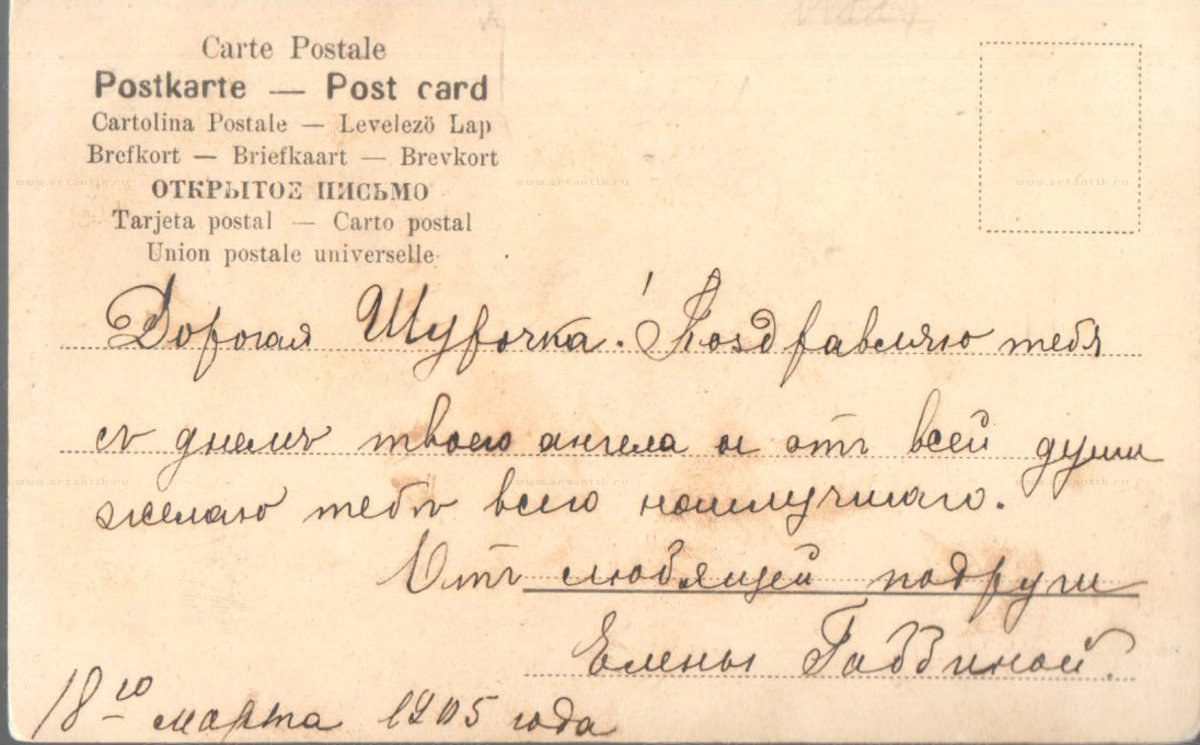 Carte Postale
Postkarte — Post card
Cartolina Postale — Levelező Lap
Brefkort — Briefkaart — Brevkort
ОТКРЫТОЕ ПИСЬМО
Tarjeta postal — Carto postal
Union postale universelle
Дорогая Шурочка! Поздравляю тебя
съ днемъ твоего ангела и отъ всей души
желаю тебѣ всего наилучшаго.
Отъ любящей подруги
Елены
18го марта 1905 года
www.artantik.ru www.artantik.ru
www.artantik.ru www.artantik.ru